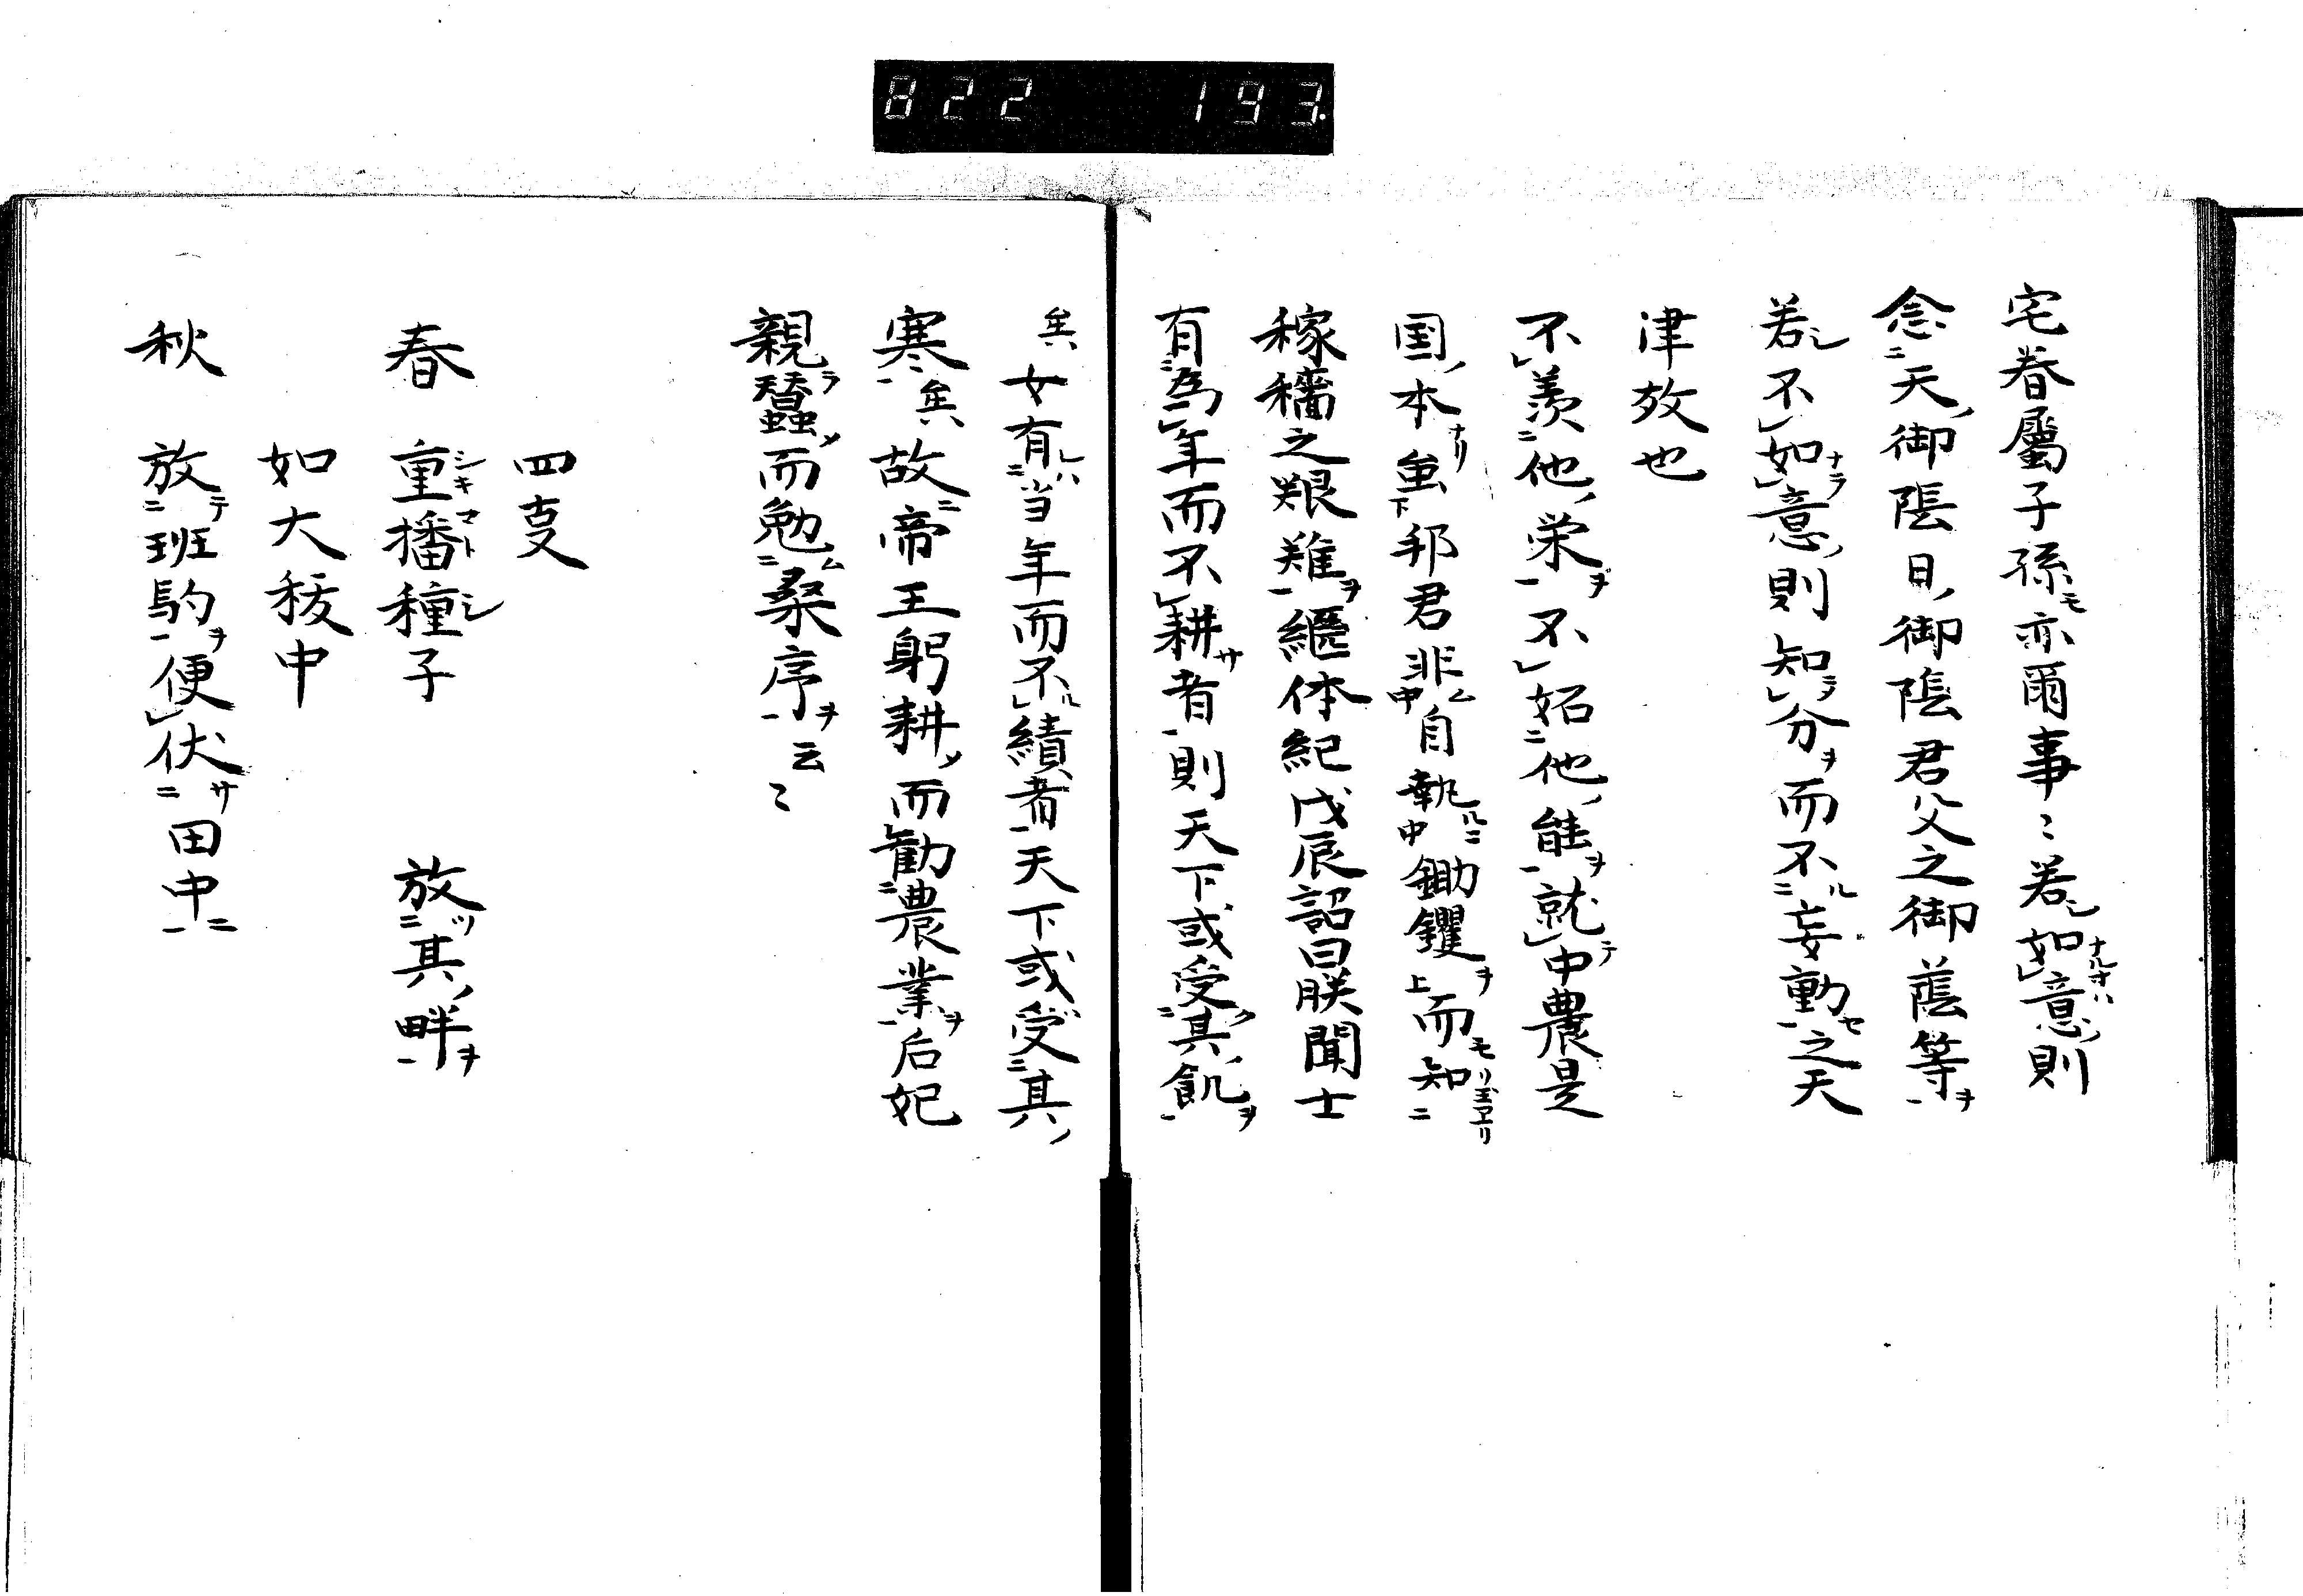 822 193.
宅眷屬子孫モ亦爾事〻若シ如ナルトキハ意ノ則
念天ノ御蔭日ノ御蔭君父之御蔭等ヲ
若シ不如ナラ意ノ則知ラ分ヲ而不ル妄動セ之天
津教也
不羨他ノ栄ヲ不妬他ノ能ヲ就テ中農是
国ノ本ナリ虽邦君非ム自執ルニ鋤钁ヲ而モ知リ玉ヱリ
稼穡之艱難ヲ継体紀戊辰詔曰朕聞士
有為年而不耕サ者則天下或受ク其ノ飢ヲ
矣女有レハ当年而不ル績者天下或受其ノ
寒矣故ニ帝王躬耕メ而勧農業ヲ后妃
親ラ蠶メ而勉ム桑序ヲ云〻
四支
春 重シキ播マト種シ子 放ツ其ノ畔ヲ
如大祓中
秋 放テ班駒ヲ便伏サ田中ニ